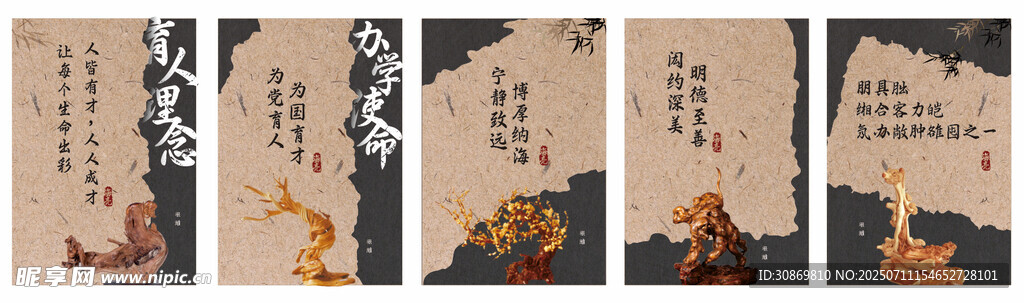 育人理念
人皆有才，人人成才
让每个生命出彩
办学使命
为国育才
为党育人
博厚纳海
宁静致远
明德至善
闳约深美
朋具胐
缃合客力皑
氖办敞肿雒园之一
昵享网 www.nipic.cn
ID:30869810 NO:20250711154652728101